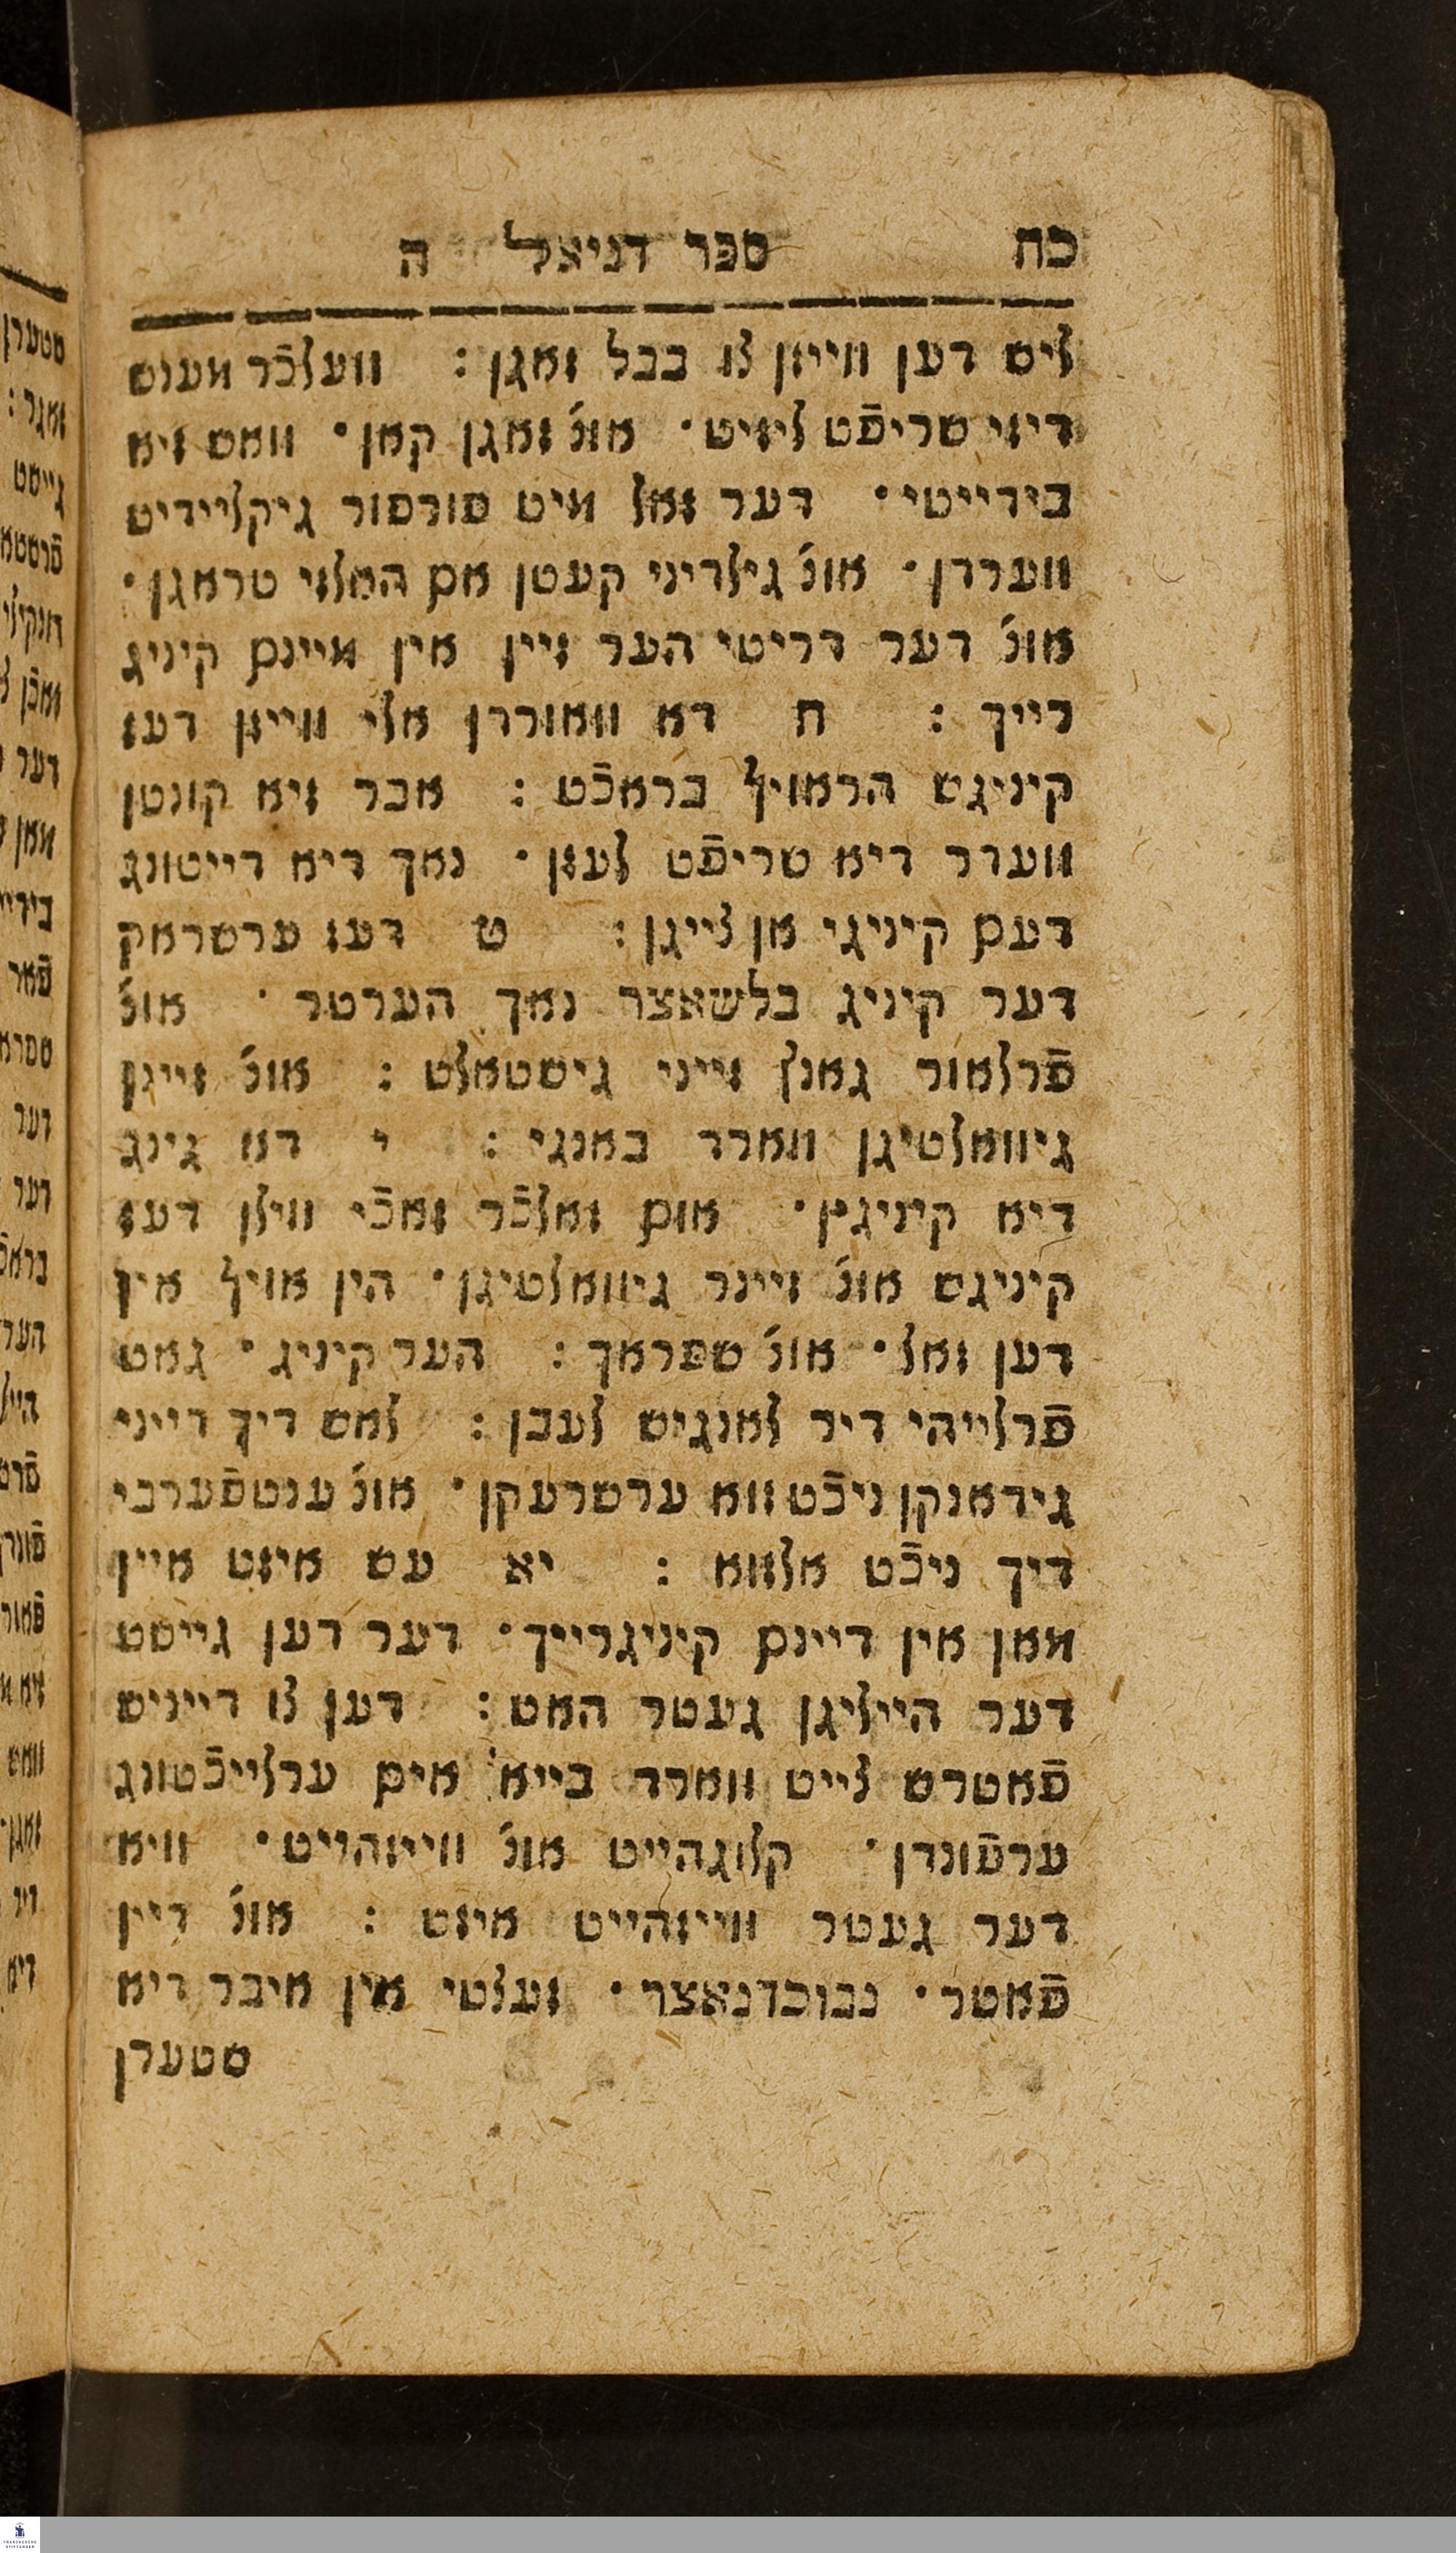 כח ספר דניאל ה
ליש דען ווייזן צו בבל זאגן : וועלכֿר מענש
דיזי שריפֿט ליזיט· אונ׳ זאגן קאן· וואש זיא
בידייטי· דער זאל מיט פורפור גיקליידיט
ווערדן· אונ׳ גילדיני קעטן אם האלזי טראגן·
אונ׳ דער דריטי הער זיין אין מיינם קיניג
רייך : ח דא וואורדן אלי ווייזן דעז
קיניגש הראויף בראכֿט : אבר זיא קונטן
וועדר דיא שריפֿט לעזן· נאך דיא דייטונג
דעם קיניגי אן צייגן : ט דעז ערשראק
דער קיניג בלשאצר נאך הערטר · אונ׳
פֿרלאור גאנץ זייני גישטאלט : אונ׳ זיינן
גיוואלטיגן ווארד באנגי : י דא גינג
דיא קיניגין· אום זאלכֿר זאכֿי ווילן דעז
קיניגש אונ׳ זיינר גיוואלטיגן· הין אויף אין
דען זאל· אונ׳ שפראך : הער קיניג· גאט
פֿרלייהי דיר לאנגיש לעבן : לאש דיך דייני
גידאנקן ניכֿט זוא ערשרעקן· אונ׳ ענטפֿערבי
דיך ניכֿט אלזוא : יא עש איזט איין
מאן אין דיינם קיניגרייך· דער דען גייסט
דער הייליגן געטר האט : דען צו דייניש
פֿאטרש צייט ווארד בייא אים ערלייכֿטונג
ערפֿונדן· קלוגהייט אונ׳ ווייזהייט· וויא
דער געטר ווייזהייט איזט : אונ׳ דיין
פֿאטר· נבוכדנאצר· זעצטי אין איבר דיא
שטערן